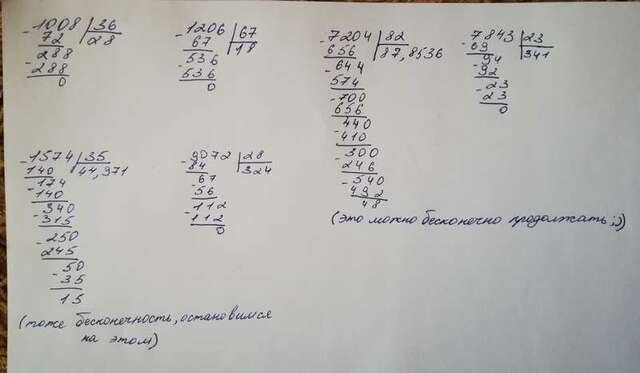 -1008 | 36
72 | 28
-288
288
0
-1206 | 67
67 | 18
-536
536
0
-7204 | 82
656 | 87,8536
-644
574
-700
656
-440
410
-300
246
-540
492
48
(это можно бесконечно продолжать;))
-7843 | 23
69 | 341
-94
92
-23
23
0
-1574 | 35
140 | 44,971
-174
140
-340
315
-250
245
-50
35
15
(тоже бесконечность, остановимся
на этом)
-9072 | 28
84 | 324
-67
56
-112
112
0